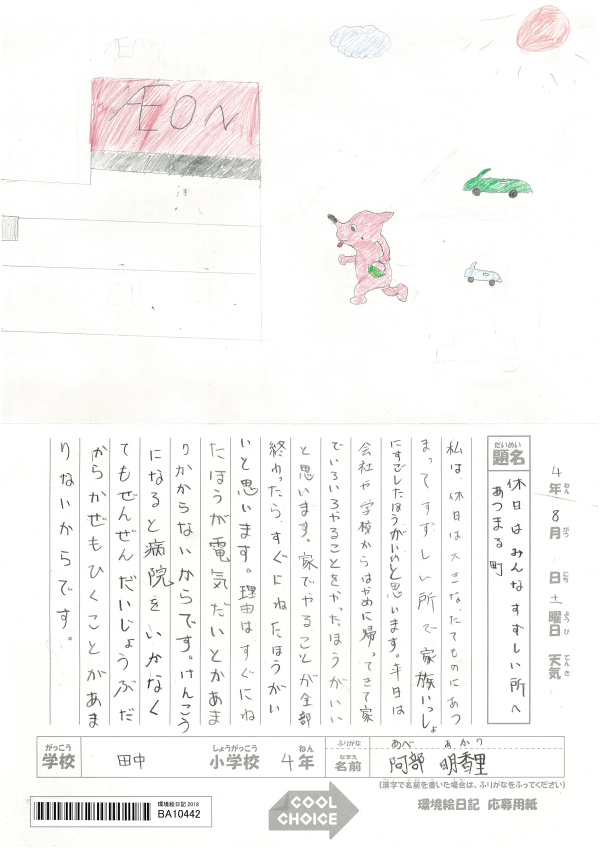 ÆON
ÆON
4年 8月 日 土曜日 天気
ねん がつ にち ようび てんき
だいめい
題名
休日はみんなすずしい所へ
あつまる町
私は、休日は大きなたてものにあつ
まってすずしい所で家族いっしょ
にすごしたほうがいいと思います。平日は
会社や学校からはやめに帰ってきて家
でいろいろやることをやったほうがいい
と思います。家でやることが全部
終わったら、すぐにねたほうがい
いと思います。理由はすぐにね
たほうが電気だいとかあま
りかからないからです。けんこう
になると病院をいかなく
てもぜんぜんだいじょうぶだ
からかぜもひくことがあま
りないからです。
がっこう しょうがっこう ねん ふりがな あべ あかり
学校 田中 小学校 4年 なまえ 名前 阿部 明香里
(漢字で名前を書いた場合は、ふりがなをふってください)
環境絵日記2018
BA10442
COOL
CHOICE
環境絵日記 応募用紙